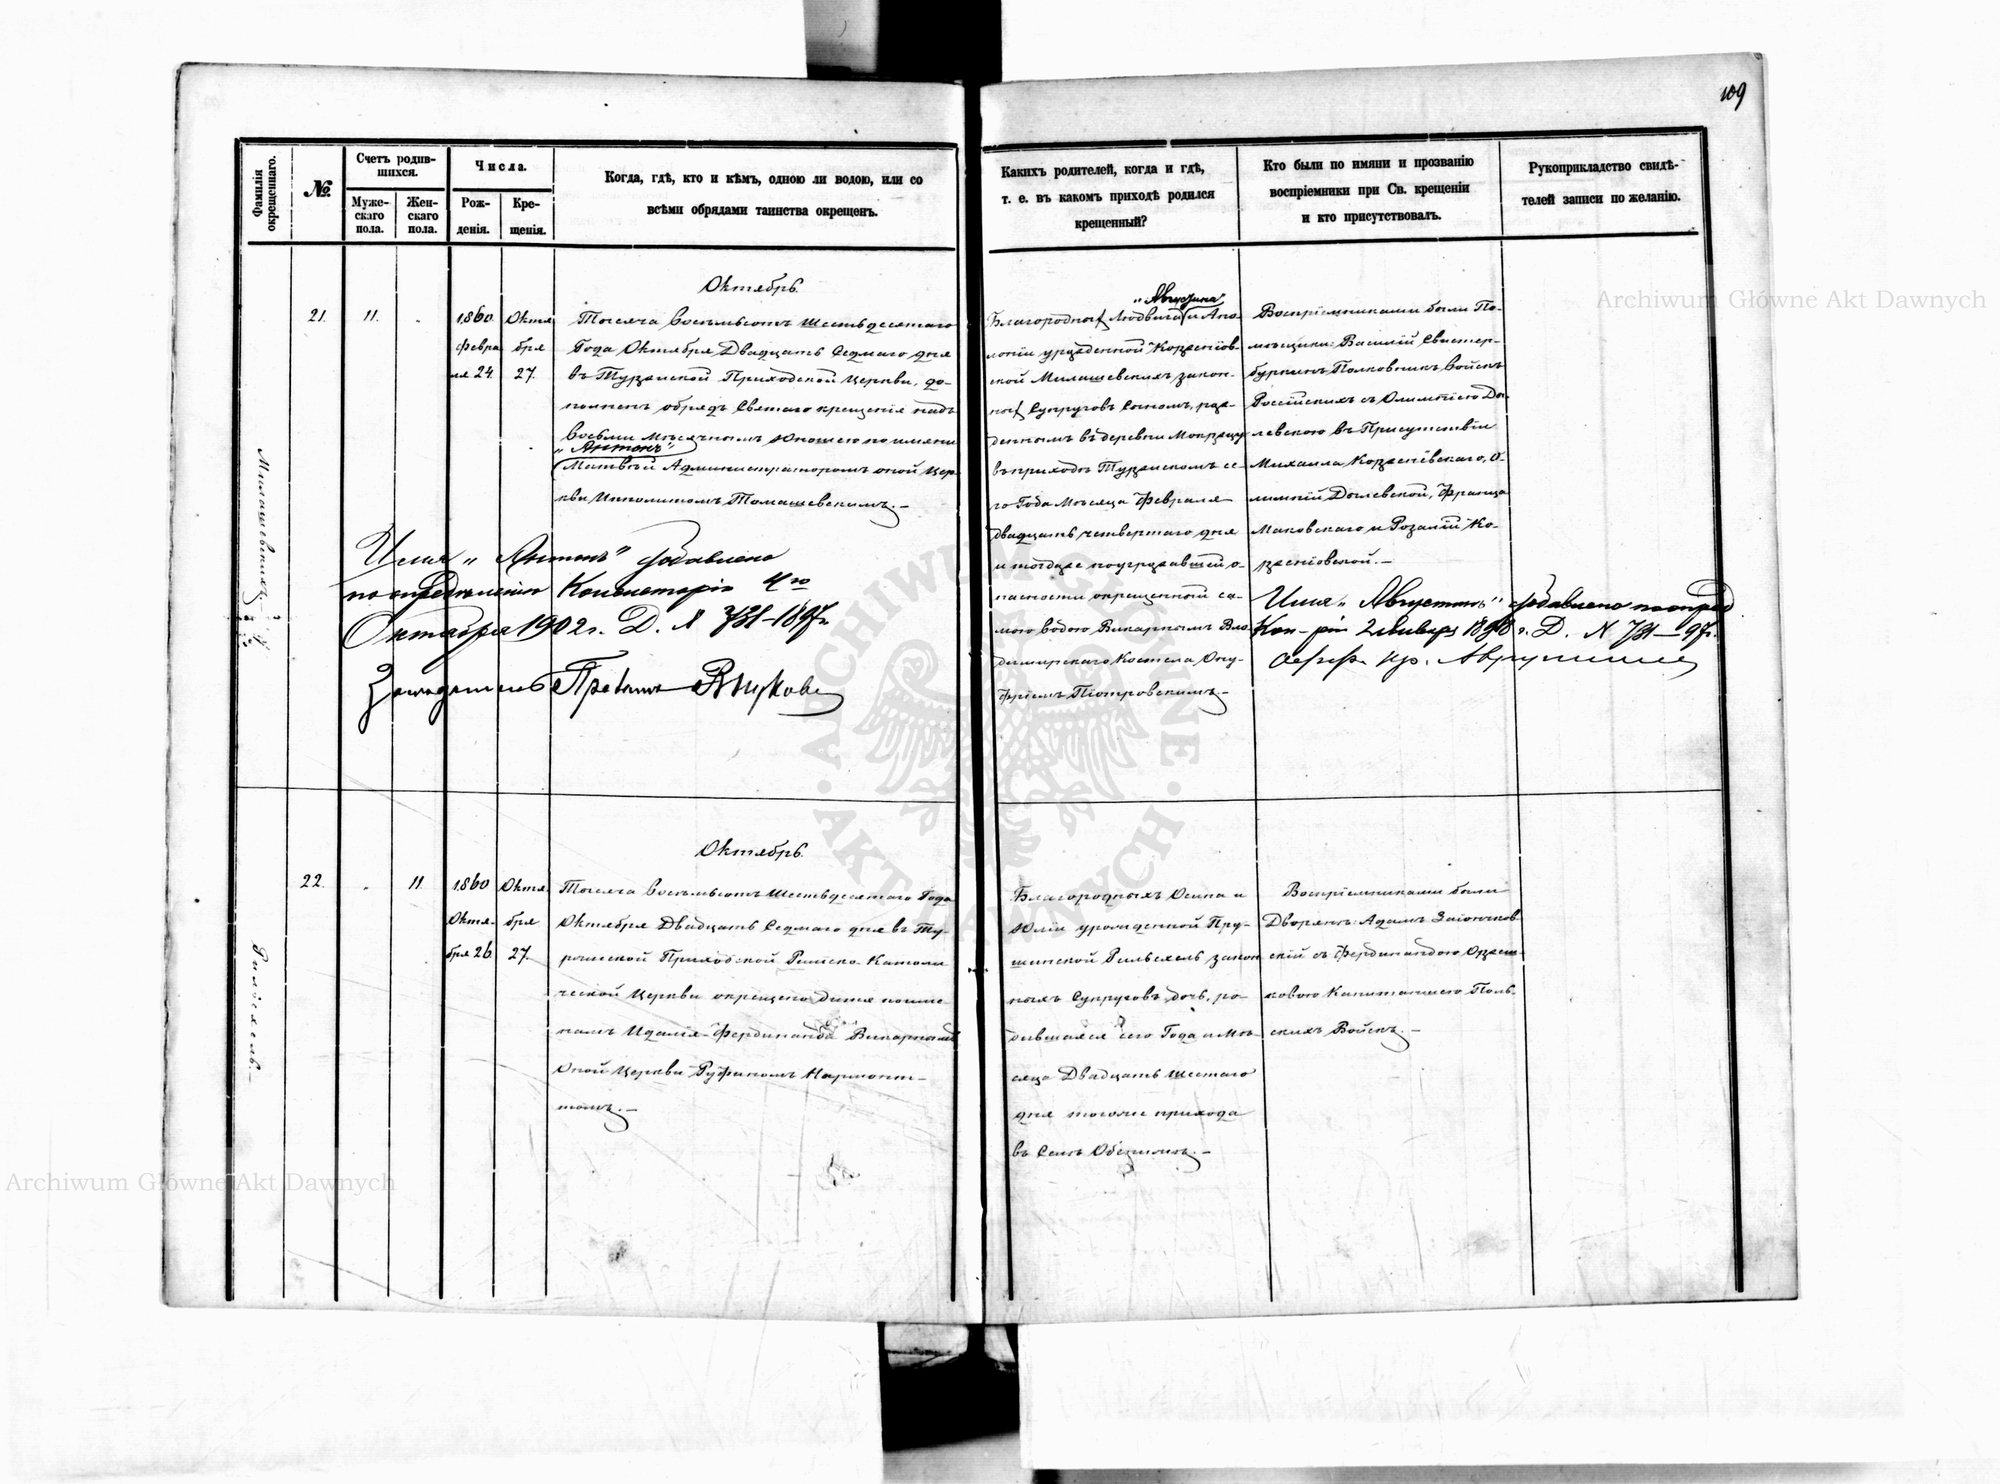 109
Фамилія окрещеннаго.
№.
Счетъ родив-
шихся.
Муже-
скаго
пола.
Жен-
скаго
пола.
Числа.
Рож-
денія.
Кре-
щенія.
Когда, гдѣ, кто и кѣмъ, одною ли водою, или со
всѣми обрядами таинства окрещенъ.
Какихъ родителей, когда и гдѣ,
т. е. въ какомъ приходѣ родился
крещенный?
Кто были по имяни и прозванію
воспріемники при Св. крещеніи
и кто присутствовалъ.
Рукоприкладство свидѣ-
телей записи по желанію.
Милашевскихъ
21.
11.
1860
Февра
ля 24
Октя
бря
27.
Октябрь
Тысяча Восѣмьсотъ Шестьдесятаго
Года Октября Двадцать Седмаго дня
въ Турійской Приходской Церкви, до-
полненъ обрядъ Святаго крещенія надъ
Восьми Мѣсячнымъ Юношею по имяни
„Антонъ"
Матвѣй Администраторомъ оной Цер-
кви Ипполитомъ Томашевскимъ.-
Имя „Антонъ" добавлено
по опредѣленію Консисторіи 4го
Октября 1902 г. Д. № 731-1897 г.
„Августина"
Благородныхъ Людвига и Апо-
лоніи урожденной Корженіов-
ской Милашевскихъ закон-
ныхъ Супруговъ Сыномъ, рож-
деннымъ въ деревни
въ приходѣ Турійскомъ се-
го Года Мѣсяца Февраля
двадцать четвертаго дня
и тогдаже по угрожавшей о-
пасности окрещенный са-
мою водою Викарнымъ Вла-
димирскаго Костела Ону-
фріемъ Піотровскимъ.-
Воспріемниками были По-
мѣщики: Василій
Полковникъ Войскъ
Россійскихъ съ Олимпіею До-
левскою въ Присутствіи
Михаила Корженіевскаго, О-
лимпіи Долевской, Франца
Маковскаго и Розаліи Ко-
рженіовской.-
Имя „Августинъ" добавлено по опред
Кон-ріи 2 Января 1898 г. Д. № 731-97 г.
Рильсхель.-
22.
11
1860
Октя-
бря 26
Октя
бря
27.
Октябрь
Тысяча Восѣмьсотъ Шестьдесятаго Года
Октября Двадцать Седмаго дня въ Ту-
рійской Приходской Римско Католи
ческой Церкви окрещено дитя по име-
намъ Идалія-Фердинанда Викарнымъ
Оной Церкви Руфиномъ Нармонт-
томъ.-
Благородныхъ Осипа и
Юліи урожденной Пру-
шинской Рильсхель закон
ныхъ Супруговъ дочь, ро-
дившаяся сего Года и Мѣ-
сяца Двадцать Шестаго
дня того же прихода
въ Селѣ
Воспріемниками были
Дворяне: Адамъ Заіончков
скій съ Фердинандою Ореш-
ковою Капитаншею Поль-
скихъ Войскъ.-
Archiwum Główne Akt Dawnych
Archiwum Główne Akt Dawnych
ARCHIWUM GŁÓWNE · AKT DAWNYCH ·